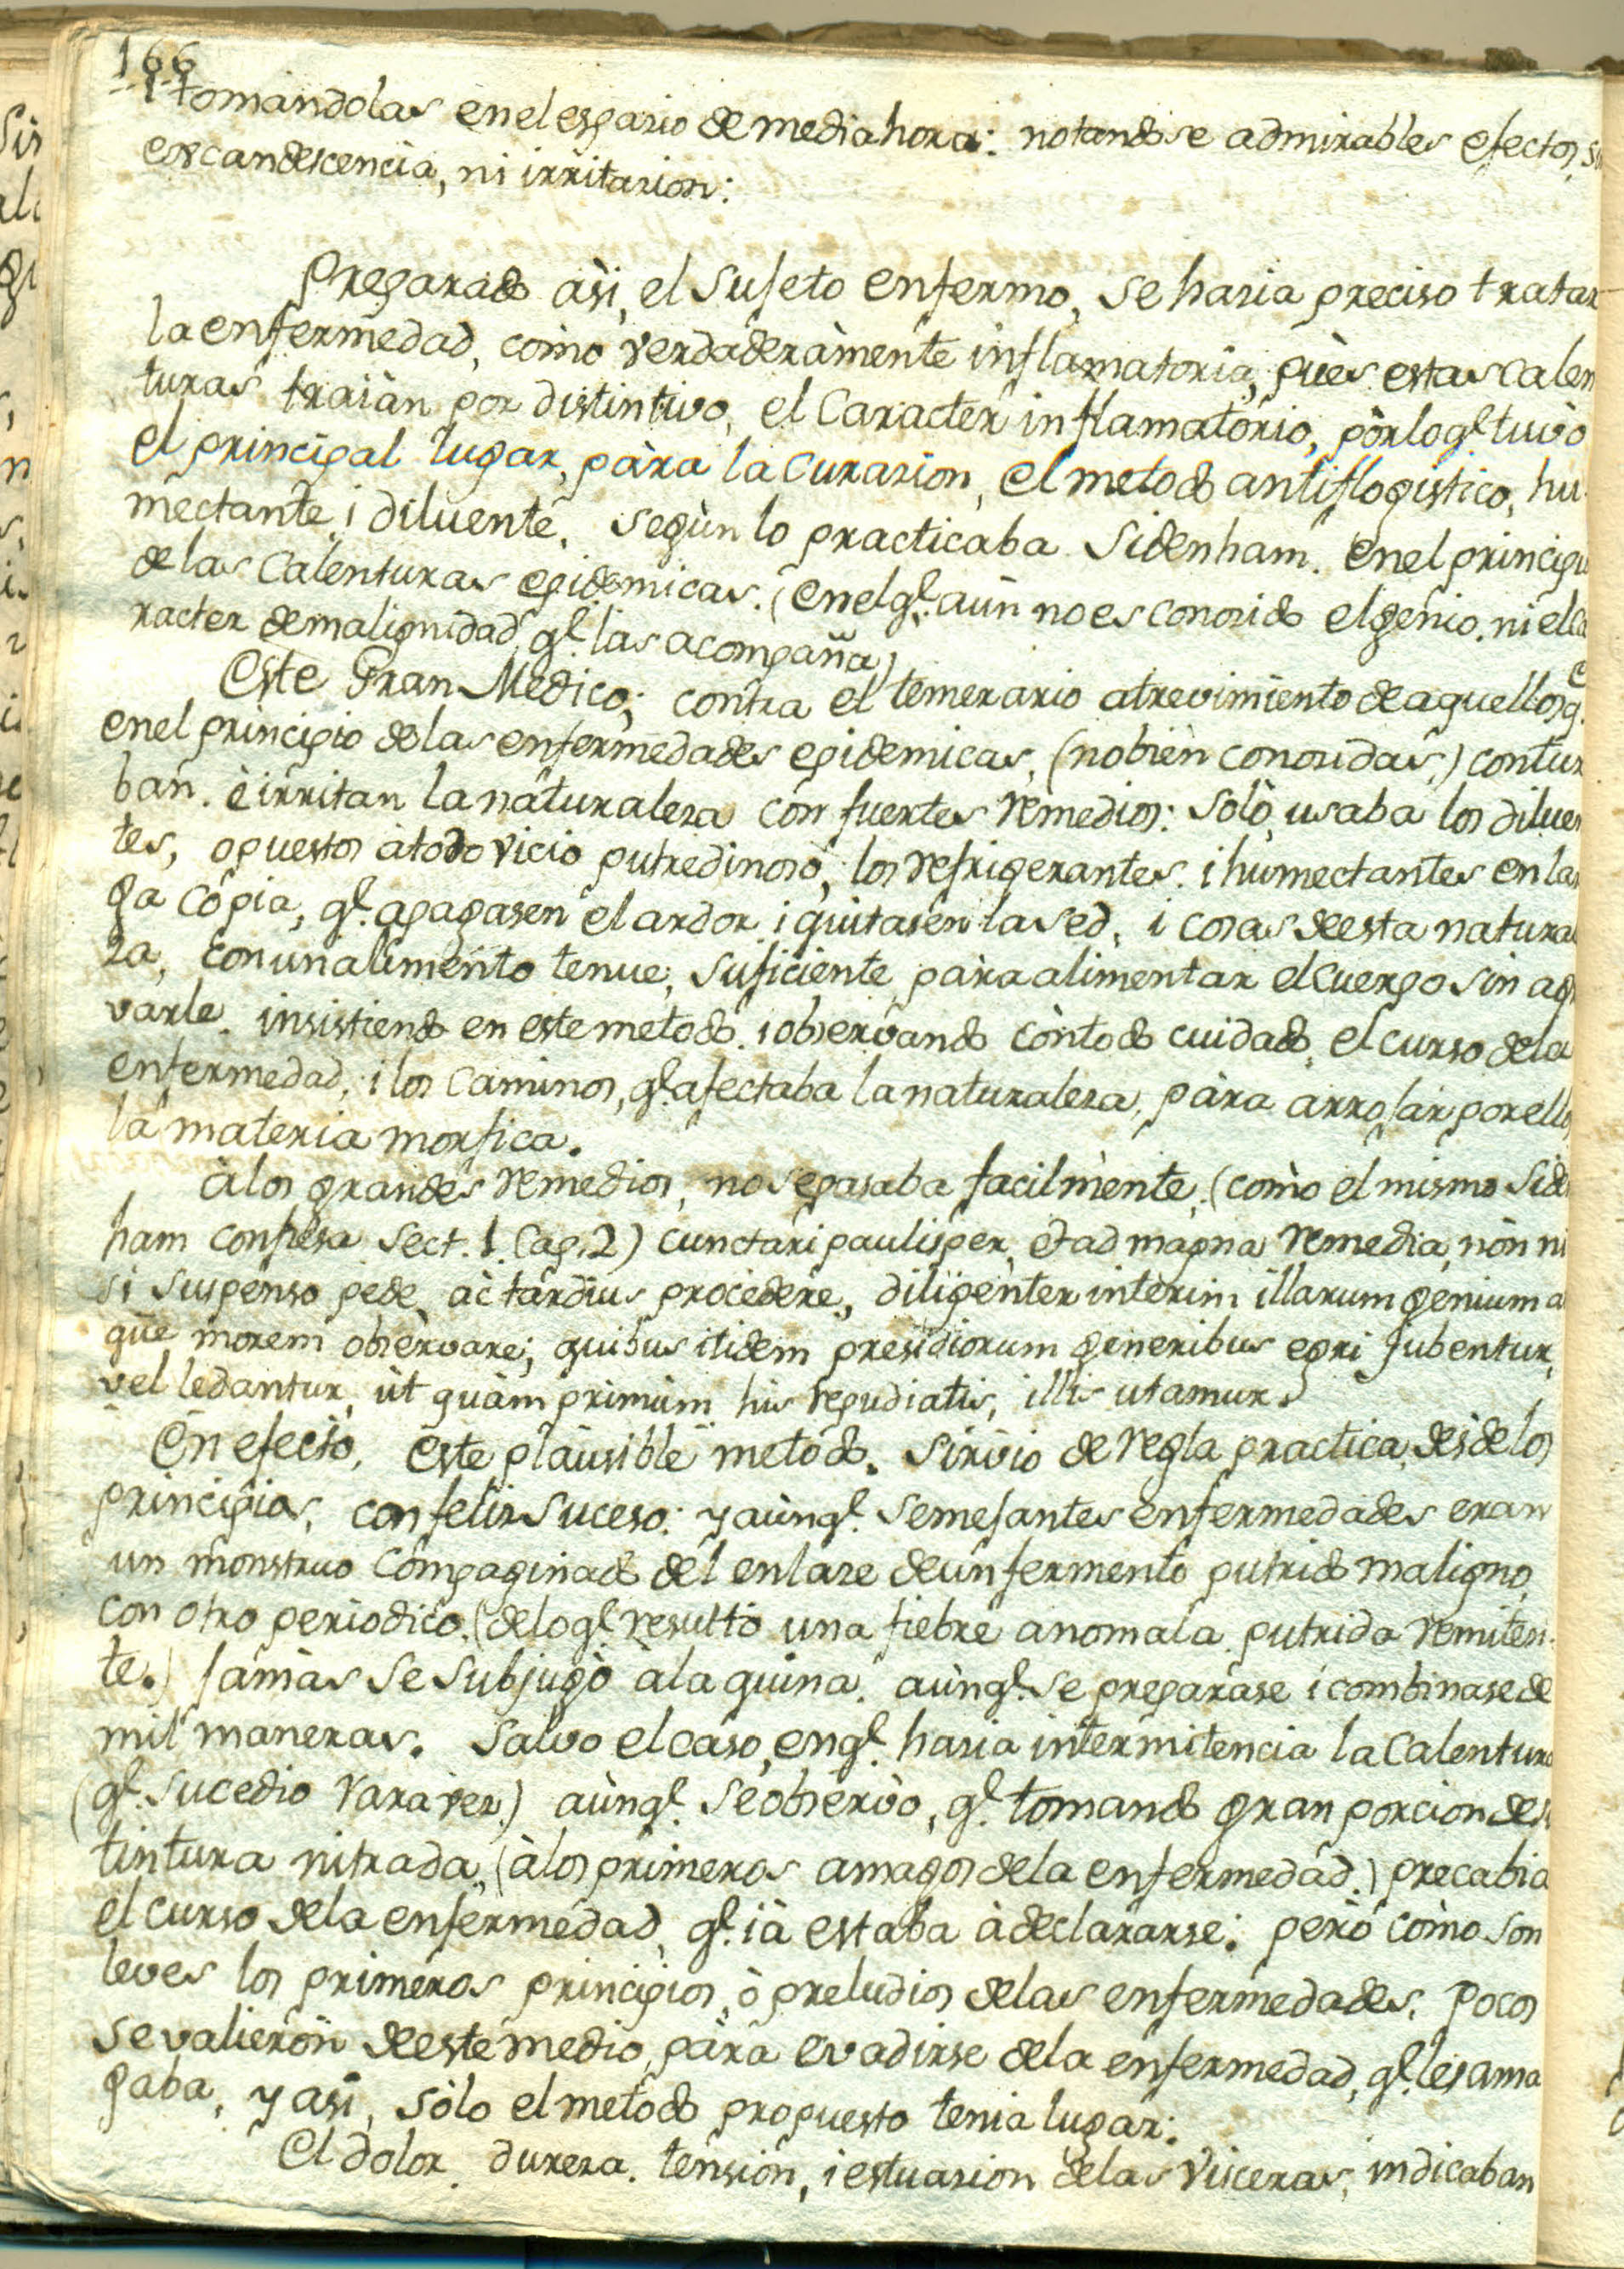 166
tomandolas en el espazio de media hora: notandose admirables efectos, si
excandescencia, ni irritazion:
Preparado àsi, el Sujeto enfermo, se hazia preciso tratar
la enfermedad, còmo verdaderàmente inflamatoria, pùes estas Calen
turas traìan por distintivo, el Caracter inflamatorio, pòr lo q.l tuvò
el principal lugar, pàra la Curazion, el metodo antiflogistico, hu-
mectante, i diluente, segùn lo practicaba Sidenham. en el principio
de las Calenturas epidemicas. (en el q.l aùn no es conozido el genio, ni el ca
racter de malignidad q.l las acompaña)
Este Gran Medico; contra el temerario atrevimiento de aquellos q.e
en el principio de las enfermedades epidemicas, (no bien conozidas,) contur
ban. è irritan la naturaleza con fuertes remedios: solò, usaba los diluen
tes, opuestos à todo vicio putredinosò, los refrigerantes. i humectantes en lar
ga còpia, q.l apagasen el ardor, i quitasen la sed, i cosas de esta natura
za, con un alimento tenue, suficiente, pàra alimentar el Cuerpo sin agr
varle, insistiendo en este metodo. i observando còn todo cuidado, el curso de la
enfermedad, i los Caminos, q.l afectaba la naturaleza, pàra arrojar por ellos
la materia morfica.
à los grandes remedios, no se pasaba facilmente, (còmo el mismo Side
ham confiesa Sect. 1. Cap. 2) cunctari paulisper, et ad magna remedia, nòn ni
si suspenso pede, àc tardius procedere, diligenter interim illarum genium a
que morem observare; quibus itidem presidiorum generibus egri jubentur,
vel ledantur, ùt quàm primùm his repudiatis, illis utamur.
En efecto, este plausible metodo. sirvio de regla practica, desde los
principios, con feliz suceso: y aùnq.l semejantes enfermedades eran
un monstruo Compaginado del enlaze de ùn fermento putrido maligno,
con otro periodico. (de lo q.l resultò una fiebre anomala putrida remiten-
te.) jamàs se subjugò à la quina. aùnq.l se preparàse i combinase de
mil maneras. Salvo el caso, en q.l hazia intermitencia la Calentura
(q.l sucedio rara vez.) aùnq.l se observò, q.l tomando gran porcion de s
tintura nitrada, (à los primeros amagos de la enfermedad.) precabia
el curso de la enfermedad, q.l ià estaba à declararse: però còmo son
leves los primeros principios, ò preludios de las enfermedades, pocos
se valieròn de este medio, pàra evadirse de la enfermedad, q.l les ama
gaba, y asi, sòlo el metodo propuesto tenia lugar:
El dolor, dureza. tensiòn, i estuazion de las visceras, indicaban